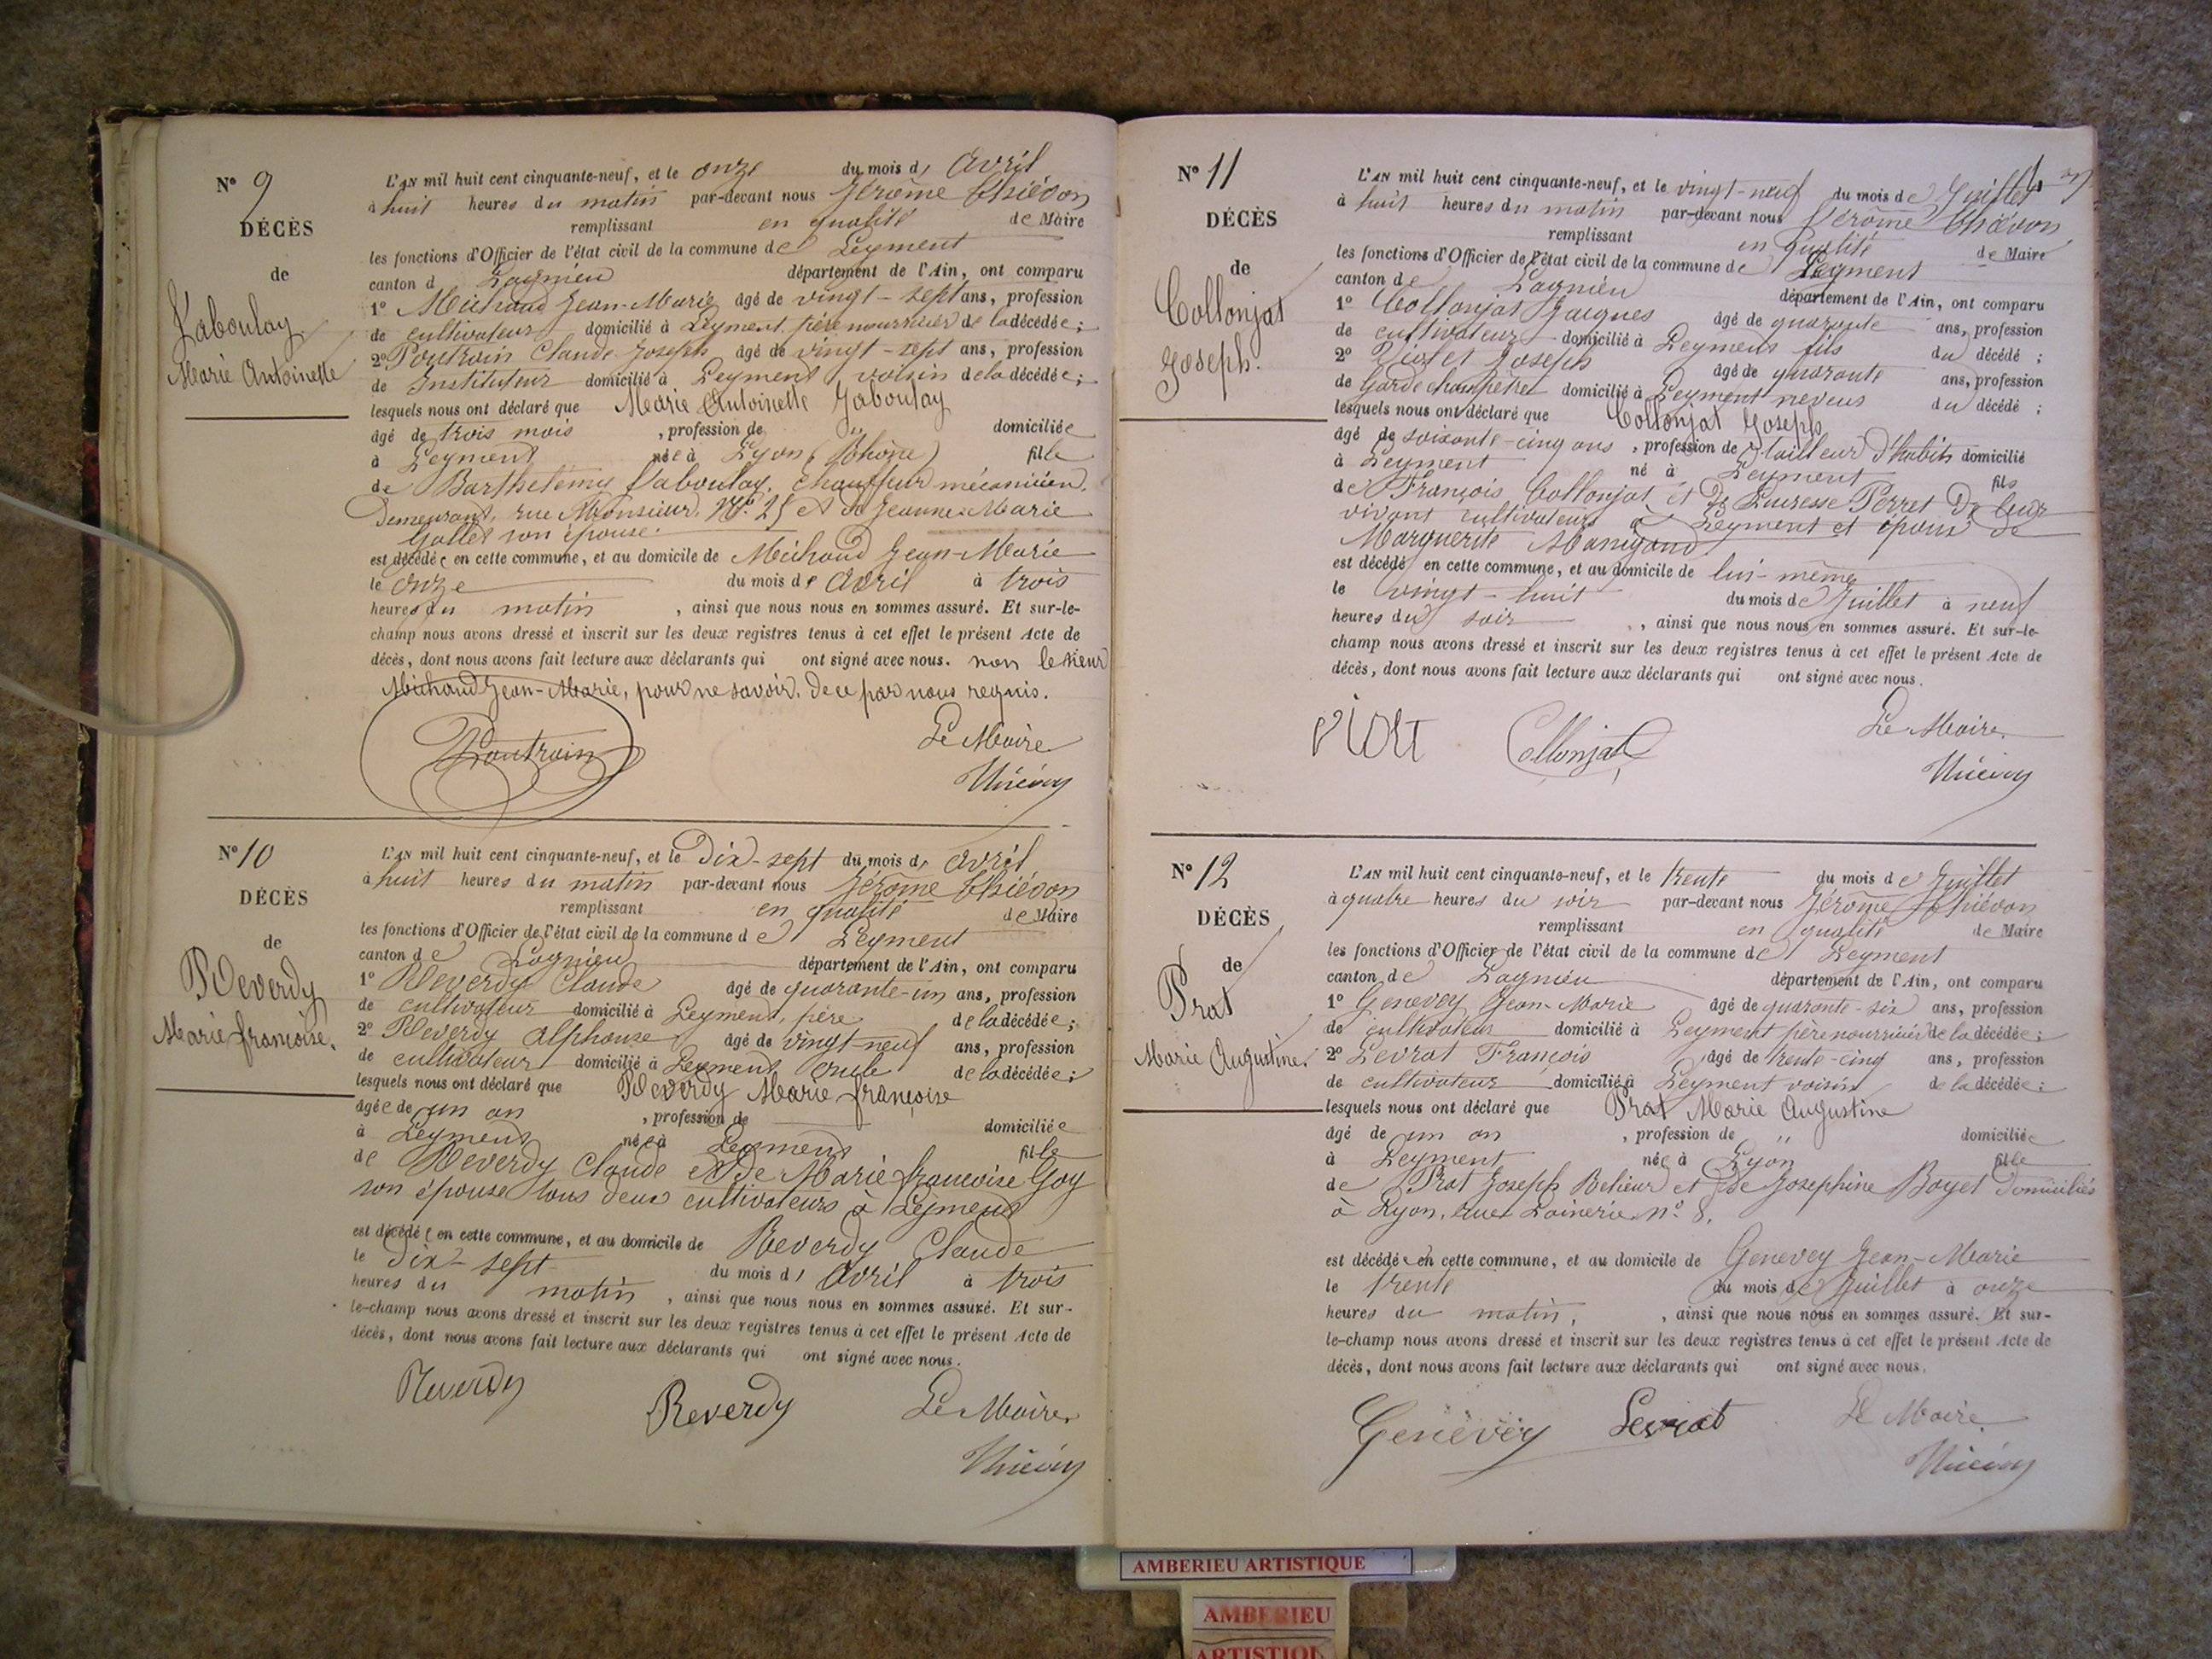 N° 9
DÉCÈS
de
Jaboulay
Marie Antoinette
L'AN mil huit cent cinquante-neuf, et le onze du mois d' Avril
à huit heures du matin par-devant nous Jérôme Thiévon
remplissant en qualité de Maire
les fonctions d'Officier de l'état civil de la commune de Leyment
canton d Lagnieu département de l'Ain, ont comparu
1° Michaud Jean-Marie âgé de vingt-sept ans, profession
de cultivateur domicilié à Leyment, père nourricier de la décédée;
2° Poutrain Claude Joseph âgé de vingt-sept ans, profession
de Instituteur domicilié à Leyment voisin de la décédée;
lesquels nous ont déclaré que Marie Antoinette Jaboulay
âgé de trois mois , profession de " domiciliée
à Leyment née à Lyon (Rhône) fille
de Barthélemy Jaboulay, chauffeur mécanicien,
Demeurant, rue Monsieur, N° 25 et de Jeanne-Marie
Gallet son épouse.
est décédée en cette commune, et au domicile de Michaud Jean-Marie
le onze du mois de Avril à trois
heures du matin , ainsi que nous nous en sommes assuré. Et sur-le-
champ nous avons dressé et inscrit sur les deux registres tenus à cet effet le présent Acte de
décès, dont nous avons fait lecture aux déclarants qui ont signé avec nous. non le sieur
Michaud Jean-Marie, pour ne savoir, de ce par nous requis.
Poutrain
Le Maire
Thiévon
N° 10
DÉCÈS
de
Reverdy
Marie françoise.
L'AN mil huit cent cinquante-neuf, et le Dix-sept du mois d' Avril
à huit heures du matin par-devant nous Jérôme Thiévon
remplissant en qualité de Maire
les fonctions d'Officier de l'état civil de la commune de Leyment
canton de Lagnieu département de l'Ain, ont comparu
1° Reverdy Claude âgé de quarante-un ans, profession
de cultivateur domicilié à Leyment, père de la décédée;
2° Reverdy Alphonse âgé de vingt neuf ans, profession
de cultivateur domicilié à Leyment, oncle de la décédée;
lesquels nous ont déclaré que Reverdy Marie françoise
âgée de un an , profession de domiciliée
à Leyment née à Leyment fille
de Reverdy Claude et de Marie françoise Goy
son épouse tous deux cultivateurs à Leyment
est décédée en cette commune, et au domicile de Reverdy Claude
le Dix-sept du mois d' Avril à trois
heures du matin , ainsi que nous nous en sommes assuré. Et sur-
le-champ nous avons dressé et inscrit sur les deux registres tenus à cet effet le présent Acte de
décès, dont nous avons fait lecture aux déclarants qui ont signé avec nous.
Reverdy
Reverdy
Le Maire
Thiévon
N° 11
DÉCÈS
de
Collonjat
Joseph.
L'AN mil huit cent cinquante-neuf, et le vingt-neuf du mois de Juillet
à huit heures du matin par-devant nous Jérôme Thiévon
remplissant en qualité de Maire
les fonctions d'Officier de l'état civil de la commune de Leyment
canton de Lagnieu département de l'Ain, ont comparu
1° Collonjat Jacques âgé de quarante ans, profession
de cultivateur domicilié à Leyment fils du décédé ;
2° Joseph âgé de quarante ans, profession
de Garde champêtre domicilié à Leyment neveu du décédé ;
lesquels nous ont déclaré que Collonjat Joseph
âgé de soixante-cinq ans , profession de tailleur d'habits domicilié
à Leyment né à Leyment fils
de François Collonjat et de Perret De leur
vivant cultivateurs à Leyment et époux de
Marguerite Manigand
est décédé en cette commune, et au domicile de lui-même
le vingt-huit du mois de Juillet à neuf
heures du soir , ainsi que nous nous en sommes assuré. Et sur-le-
champ nous avons dressé et inscrit sur les deux registres tenus à cet effet le présent Acte de
décès, dont nous avons fait lecture aux déclarants qui ont signé avec nous.
Collonjat
Le Maire
Thiévon
N° 12
DÉCÈS
de
Prat
Marie Augustine.
L'AN mil huit cent cinquante-neuf, et le trente du mois de Juillet
à quatre heures du soir par-devant nous Jérôme Thiévon
remplissant en qualité de Maire
les fonctions d'Officier de l'état civil de la commune de Leyment
canton de Lagnieu département de l'Ain, ont comparu
1° Genevey Jean-Marie âgé de quarante-six ans, profession
de cultivateur domicilié à Leyment père nourricier de la décédée;
2° Levrat François âgé de trente-cinq ans, profession
de cultivateur domicilié à Leyment voisin de la décédée;
lesquels nous ont déclaré que Prat Marie Augustine
âgé de un an , profession de " domiciliée
à Leyment née à Lyon fille
de Prat Joseph Relieur et de Josephine Boyet domiciliés
à Lyon, rue Lainerie n° 8.
est décédée en cette commune, et au domicile de Genevey Jean-Marie
le trente du mois de Juillet à onze
heures du matin, , ainsi que nous nous en sommes assuré. Et sur-
le-champ nous avons dressé et inscrit sur les deux registres tenus à cet effet le présent Acte de
décès, dont nous avons fait lecture aux déclarants qui ont signé avec nous.
Genevey
Levrat
Le Maire
Thiévon
AMBERIEU ARTISTIQUE
AMBERIEU